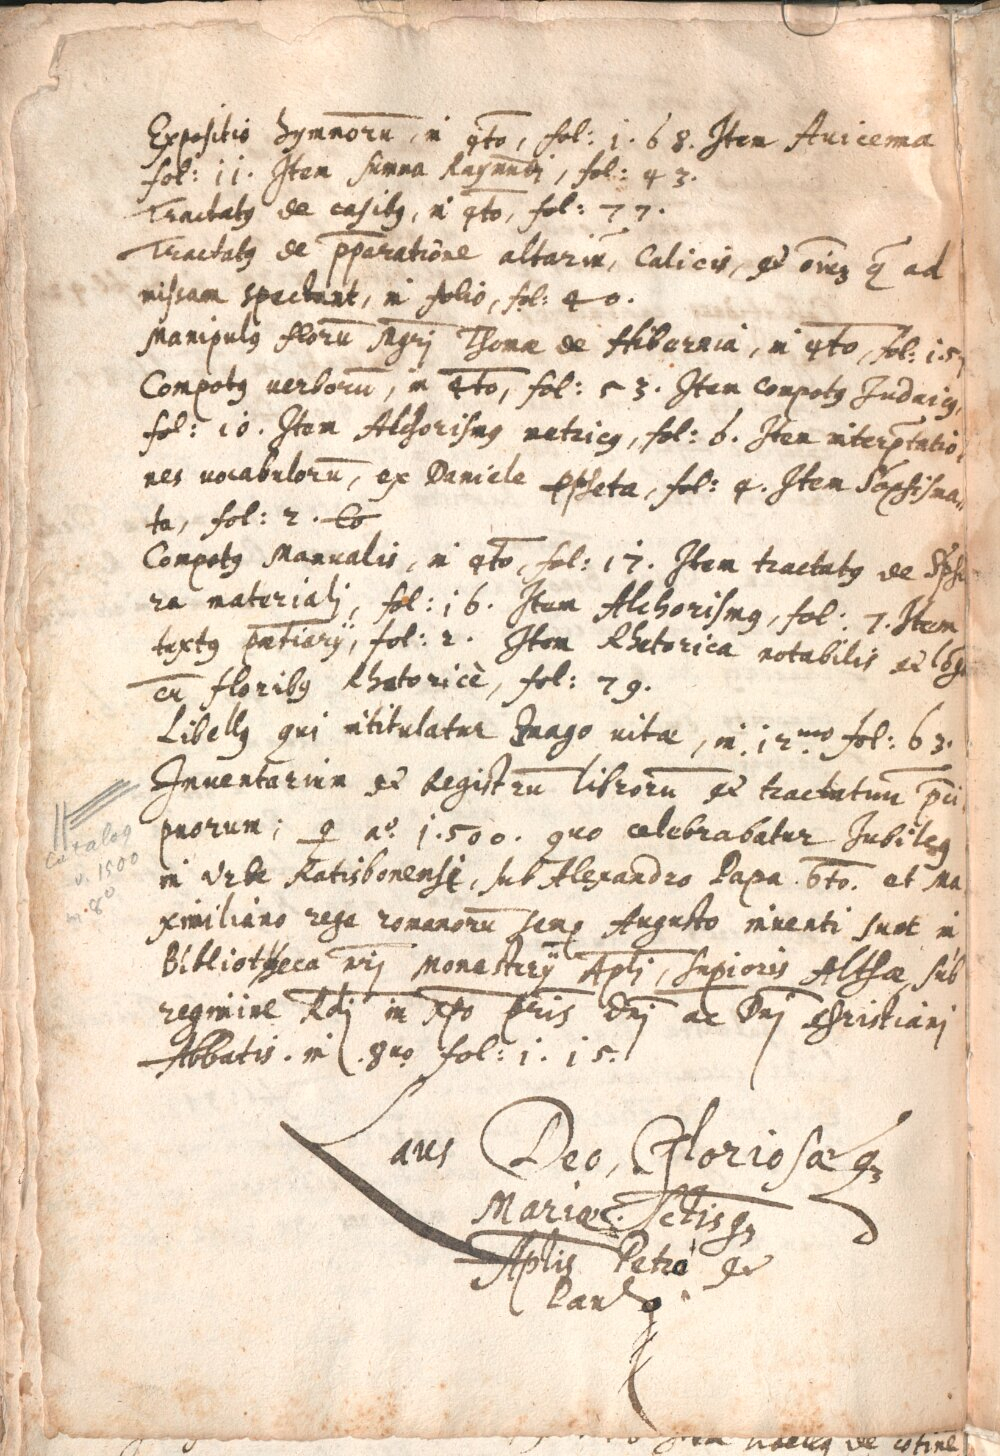 Expositio hymnorū, in 4to, fol: 1. 68. Item Auicenna
fol: 11. Item summa Raymundi, fol: 43.
Tractatꝰ de casibꝰ, in 4to, fol: 77.
Tractatꝰ de pparatiōne altariū, Calicis, et ōniū q̄ ad
missam spectant, in folio, fol: 40.
Manipulꝰ florū Mgrj Thomæ de Hibernia, in 4to, fol: 1.5
Compotꝰ uerborū, in 4to, fol: 53. Item compotꝰ Judaicꝰ,
fol: 10. Item Alchorismꝰ metricꝰ, fol: 6. Item interp̄tatio
nes uocabulorū, ex Daniele ppheta, fol: 4. Item Sophisma„
ta, fol: 2. Co
Compotꝰ Manualis, in 4to, fol: 17. Item tractatꝰ de Sphę
ra materialj, fol: 16. Item Alchorismꝰ, fol: 7. Item
textꝰ pn̄tiarij, fol: 2. Item Rhetorica notabilis et
cū floribꝰ Rhetoricè, fol: 79.
Libellꝰ qui ītitulatur Imago uitæ, in 12mo fol: 63.
Inuentarium et Registrū librorū et tractatuum p̄ci
puorum; q ao. 1.500. quo celebrabatur Jubileꝰ
in Vrbe Ratisbonensi, sub Alexandro Papa 6to. et Ma
ximiliano rege romanorū semp Augusto inuenti sunt in
Bibliotheca nrj Monastrij Aplj, supioris Althæ, sub
regimine Rdj in xpo pris Dnj ac Dnj Christianj
Abbatis. in 8uo fol: 1. 15.
Catalog
v. 1500
in 8o
Laus Deo, Gloriosæqȝ
Mariæ. Sctisqȝ
Aplis Petro et
Paulo